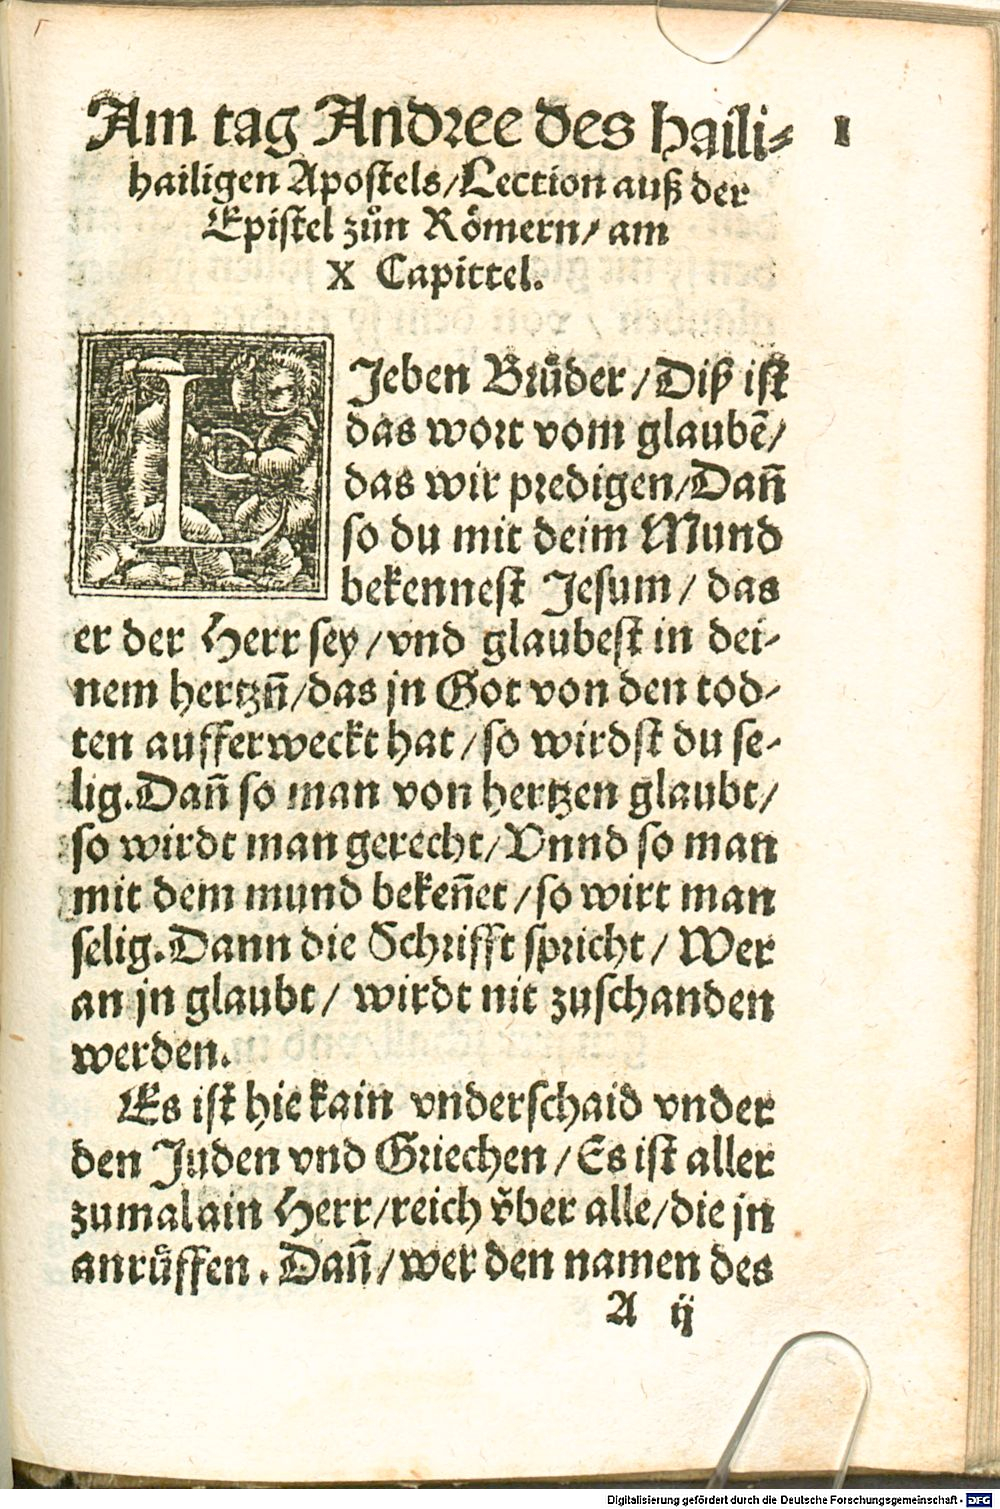 Am tag Andree des haili⸗ 1
hailigen Apostels/Lection auß der
Epistel zůn Rőmern/ am
X Capittel.
LJeben Brůder/Diß ist
das wort vom glaubē/
das wir predigen/Dañ
so du mit deim Mund
bekennest Jesum/ das
er der Herr sey/vnd glaubest in dei⸗
nem hertzñ/das jn Got von den tod⸗
ten aufferweckt hat/so wirdst du se⸗
lig.Dañ so man von hertzen glaubt/
so wirdt man gerecht/Vnnd so man
mit dem mund bekeñet/so wirt man
selig.Dann die Schrifft spricht/ Wer
an jn glaubt/ wirdt nit zuschanden
werden.
Es ist hie kain vnderschaid vnder
den Juden vnd Griechen/Es ist aller
zumal ain Herr/reich vͤber alle/die jn
anrůffen. Dañ/wer den namen des
A ij
Digitalisierung gefördert durch die Deutsche Forschungsgemeinschaft - DFG